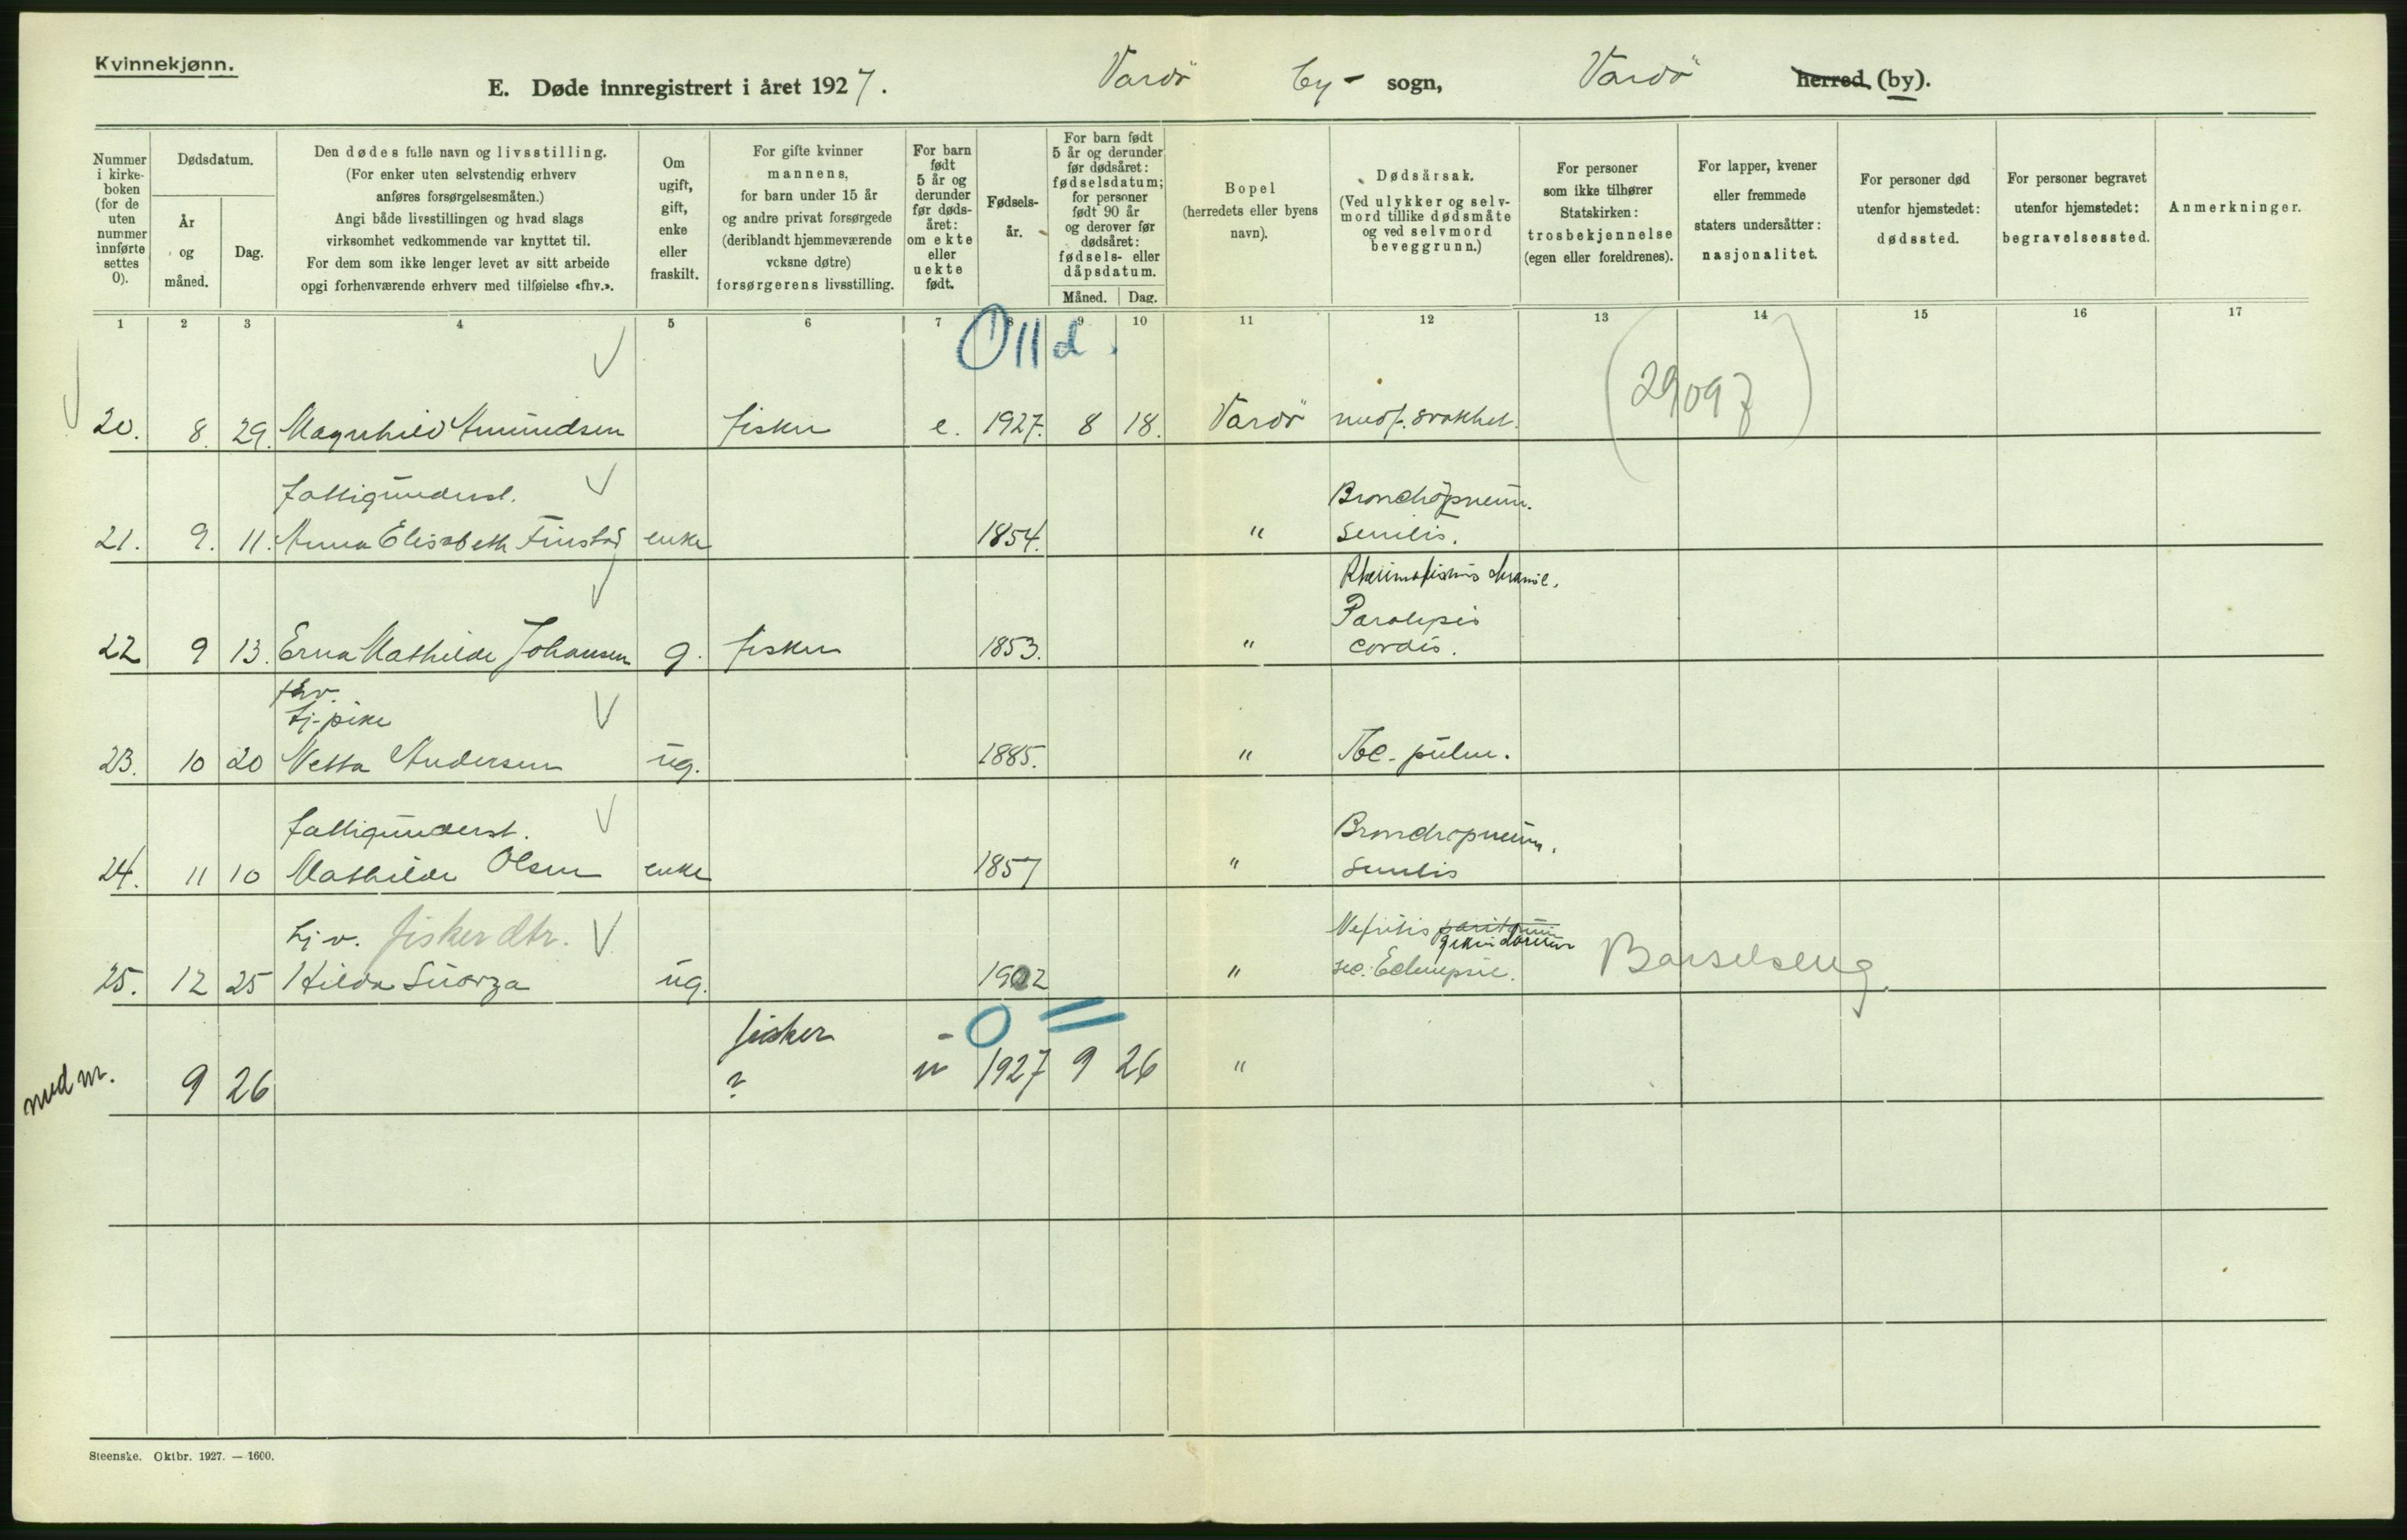 Kvinnekjønn.
E. Døde innregistrert i året 1927. Vardö by- sogn, Vardö herred (by).
Nummer i kirkeboken (for de uten nummer innførte settes 0).
Dødsdatum.
År og måned.
Dag.
Den dødes fulle navn og livsstilling.
(For enker uten selvstendig erhverv
anføres forsørgelsesmåten.)
Angi både livsstillingen og hvad slags
virksomhet vedkommende var knyttet til.
For dem som ikke lenger levet av sitt arbeide
opgi forhenværende erhverv med tilføielse «fhv.».
Om ugift, gift, enke eller fraskilt.
For gifte kvinner
mannens,
for barn under 15 år
og andre privat forsørgede
(deriblandt hjemmeværende
voksne døtre)
forsørgerens livsstilling.
For barn født 5 år og derunder før dødsåret: om ekte eller uekte født.
Fødselsår.
For barn født
5 år og derunder
før dødsåret:
fødselsdatum;
for personer
født 90 år
og derover før
dødsåret:
fødsels- eller
dåpsdatum.
Måned. Dag.
Bopel
(herredets eller byens
navn).
Dødsårsak.
(Ved ulykker og selvmord tillike dødsmåte
og ved selvmord
beveggrunn.)
For personer
som ikke tilhører
Statskirken:
trosbekjennelse
(egen eller foreldrenes).
For lapper, kvener
eller fremmede
staters undersåtter:
nasjonalitet.
For personer død
utenfor hjemstedet:
dødssted.
For personer begravet
utenfor hjemstedet:
begravelsessted.
Anmerkninger.
1 2 3 4 5 6 7 8 9 10 11 12 13 14 15 16 17
0 11 d.
20. 8. 29. Magnhild Amundsen fisker e. 1927. 8 18. Vardö medf. svakhet. (29097)
fattigunderst. Bronchopneum.
21. 9. 11. Anna Elisabeth Finstad enke 1854. " senilis.
Rheumatismus chronic.
Paralysis
22 9 13. Erna Mathilde Johansen g. fisker 1853. " cordis.
fhv.
tj.pike
23. 10 20 Netta Andersen ug. 1885. " Tbc. pulm.
fattigunderst. Bronchopneum.
24. 11 10 Mathilde Olsen enke 1857 " senilis
hj v. fisker dtr. Nefritis
25. 12 25 Hilda Suorza ug. 1902 " sec. Eclampsie. Barselseng
fisker
9 26 ? u 1927 9 26 "
Steenske. Oktbr. 1927. — 1600.